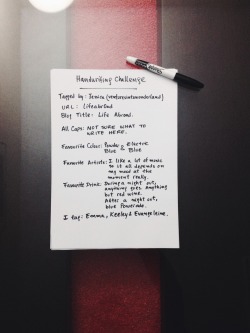 Handwriting Challenge
Tagged by: Jessica (ventureintowonderland)
URL: lifeabr0ad
Blog Title: Life Abroad.
All Caps: NOT SURE WHAT TO
WRITE HERE.
Favourite Colour: Powder & Electric
Blue Blue
Favourite Artists: I like a lot of music
so it all depends on
my mood at the
moment really.
Favourite Drink: During a night out,
anything goes. Anything
but red wine.
After a night out,
blue Powerade.
I tag: Emma, Keeley & Evangeleine.